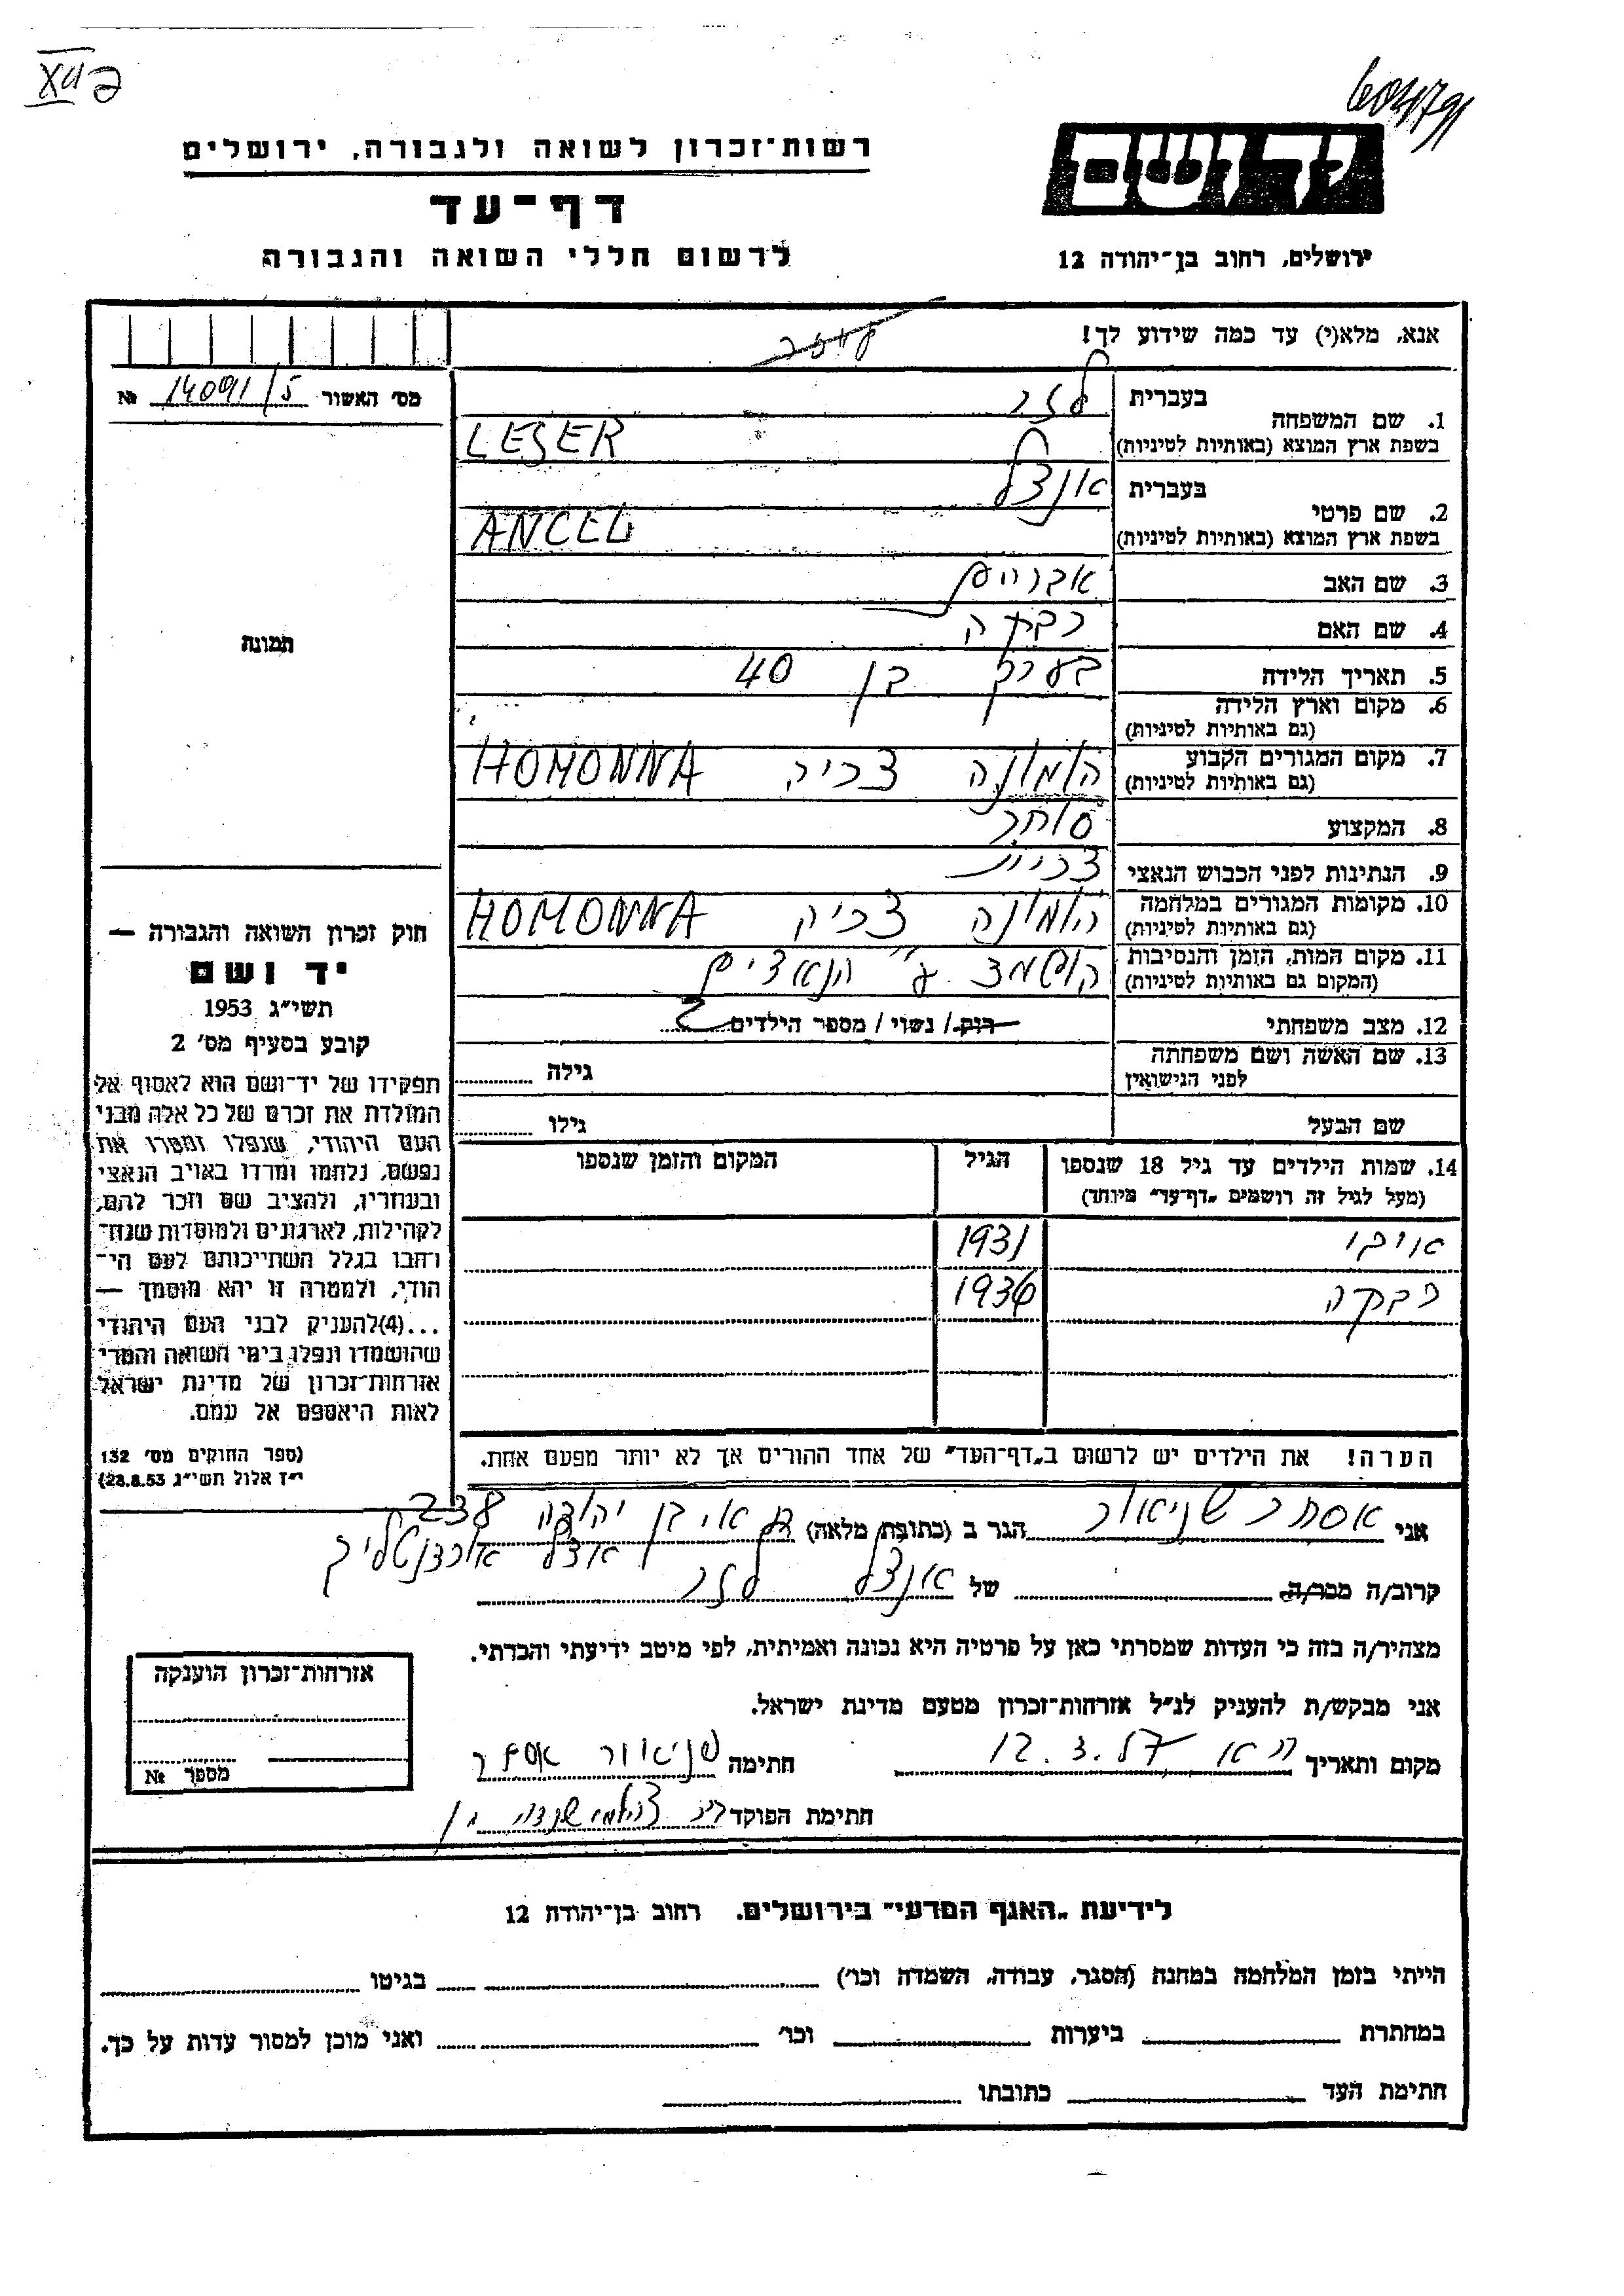 רשות־זכרון לשואה ולגבורה, ירושלים
דף־עד
לרשום חללי השואה והגבורה
יד ושם
ירושלים, רחוב בן־יהודה 12
אנא, מלא(י) עד כמה שידוע לך!
מס׳ האשור 14091/5 №
1. שם המשפחה
בעברית לזר
בשפת ארץ המוצא (באותיות לטיניות) LESER
2. שם פרטי
בעברית אנצל
בשפת ארץ המוצא (באותיות לטיניות) ANCEL
3. שם האב אברהם
4. שם האם רבקה
5. תאריך הלידה בערך בן 40
6. מקום וארץ הלידה
(גם באותיות לטיניות)
7. מקום המגורים הקבוע הומונה צכיה HOMONNA
(גם באותיות לטיניות)
8. המקצוע סוחר
9. הנתינות לפני הכבוש הנאצי צכית
10. מקומות המגורים במלחמה הומונה צכיה HOMONNA
(גם באותיות לטיניות)
11. מקום המות, הזמן והנסיבות הושמד ע״ הנאצים
(המקום גם באותיות לטיניות)
12. מצב משפחתי רוק / נשוי / מספר הילדים 2
13. שם האשה ושם משפחתה
לפני הנישואין
גילה
שם הבעל גילו
14. שמות הילדים עד גיל 18 שנספו הגיל המקום והזמן שנספו
(מעל לגיל זה רושמים „דף־עד״ מיוחד)
1931
רבקה 1936
הערה! את הילדים יש לרשום ב„דף־העד״ של אחד ההורים אך לא יותר מפעם אחת.
תמונה
חוק זכרון השואה והגבורה —
יד ושם
תשי״ג 1953
קובע בסעיף מס׳ 2
תפקידו של יד־ושם הוא לאסוף אל
המולדת את זכרם של כל אלה מבני
העם היהודי, שנפלו ומסרו את
נפשם, נלחמו ומרדו באויב הנאצי
ובעוזריו, ולהציב שם וזכר להם,
לקהילות, לארגונים ולמוסדות שנח־
רבו בגלל השתייכותם לעם הי־
הודי, ולמטרה זו יהא מוסמך —
...(4)להעניק לבני העם היהודי
שהושמדו ונפלו בימי השואה והמרי
אזרחות־זכרון של מדינת ישראל
לאות היאספם אל עמם.
(ספר החוקים מס׳ 132
י״ז אלול תשי״ג 28.8.53)
אני אסתר שניאור הגר ב (כתובת מלאה) בן יהודה 238
קרוב/ה מכר/ה של אנצל לזר
מצהיר/ה בזה כי העדות שמסרתי כאן על פרטיה היא נכונה ואמיתית, לפי מיטב ידיעתי והכרתי.
אני מבקש/ת להעניק לנ״ל אזרחות־זכרון מטעם מדינת ישראל.
מקום ותאריך 12.3.57 חתימה שניאור אסתר
חתימת הפוקד
אזרחות־זכרון הוענקה
מספר №
לידיעת „האגף המדעי״ בירושלים, רחוב בן־יהודה 12
הייתי בזמן המלחמה במחנה (הסגר, עבודה, השמדה וכו׳) בגיטו
במחתרת ביערות וכו׳ ואני מוכן למסור עדות על כך.
חתימת העד כתובתו